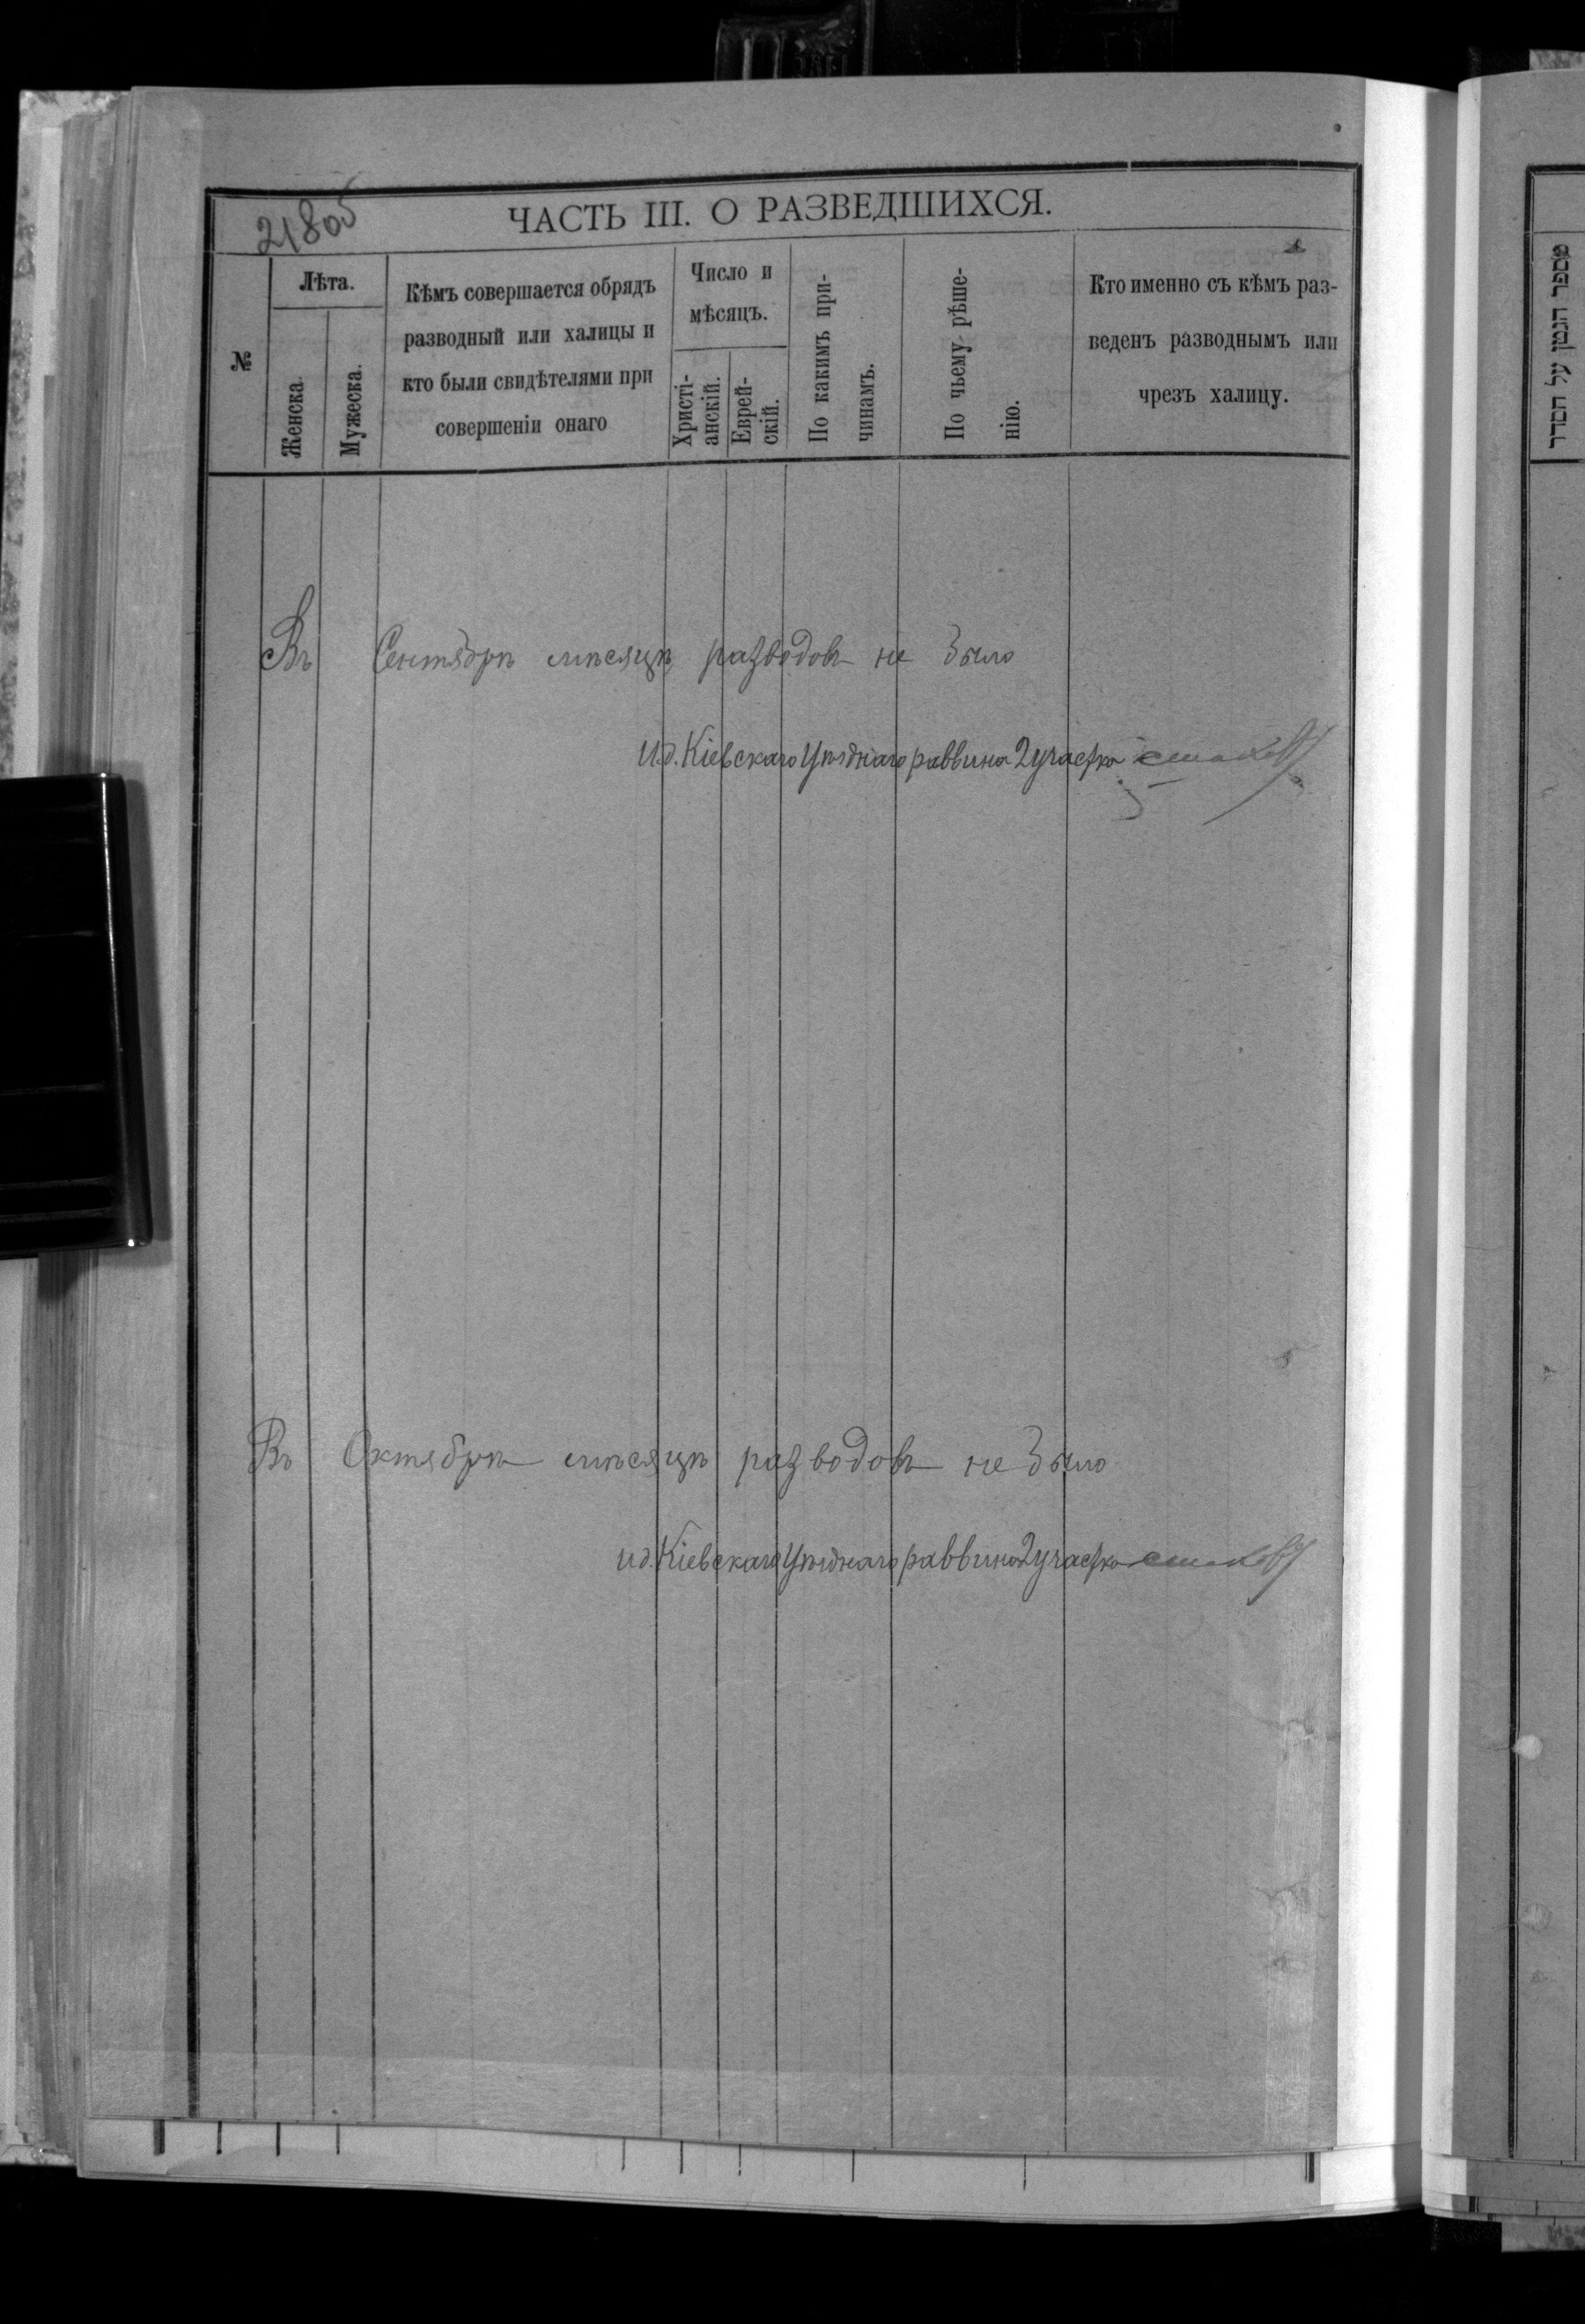 218об
ЧАСТЬ III. О РАЗВЕДШИХСЯ.
№
Лѣта.
Женска.
Мужеска.
Кѣмъ совершается обрядъ
разводный или халицы и
кто были свидѣтелями при
совершеніи онаго
Число и
мѣсяцъ.
Христі-
анскій.
Еврей-
скій.
По какимъ при-
чинамъ.
По чьему рѣше-
нію.
Кто именно съ кѣмъ раз-
веденъ разводнымъ или
чрезъ халицу.
Въ Сентябрѣ мѣсяцѣ разводовъ не было
И.д. Кіевскаго Уѣзднаго раввина 2 участка
Въ Октябрѣ мѣсяцѣ разводовъ не было
и.д. Кіевскаго Уѣзднаго раввина 2 участка
מספר הנמן על הסדר